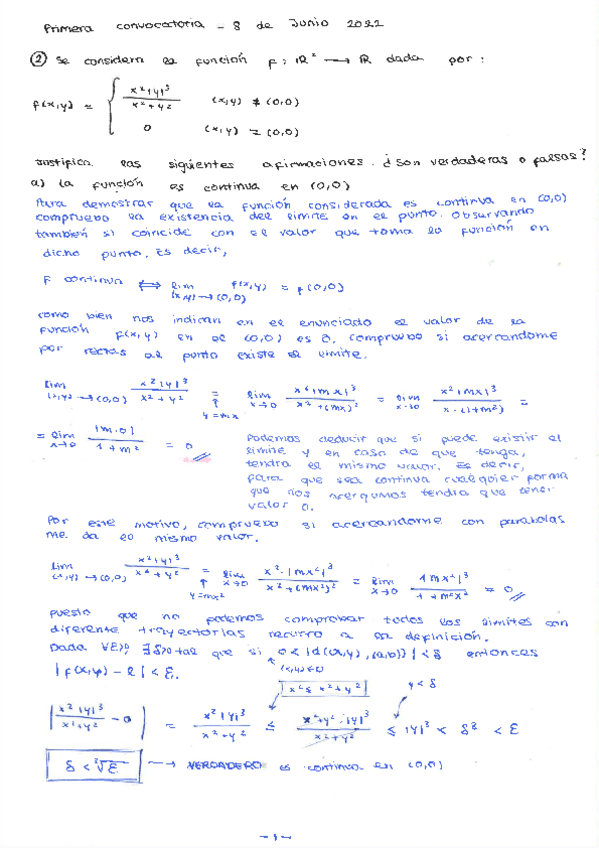 Primera convocatoria - 8 de Junio 2022
② Se considera la función f: ℝ² → ℝ dada por:
f(x,y) = { x²|y|³ / x²+y²   (x,y) ≠ (0,0)
0   (x,y) = (0,0)
Justifica las siguientes afirmaciones. ¿Son verdaderas o falsas?
a) La función es continua en (0,0)
Para demostrar que la función considerada es continua en (0,0)
compruebo la existencia del límite en el punto. Observando
también si coincide con el valor que toma la función en
dicho punto. Es decir,
F continua ⟺ lim (x,y)→(0,0) f(x,y) = f(0,0)
como bien nos indican en el enunciado el valor de la
función f(x,y) en el (0,0) es 0, compruebo si acercandome
por rectas al punto existe el límite.
lim (x,y)→(0,0) x²|y|³ / x²+y² = (y=mx) lim x→0 x²|mx|³ / x²+(mx)² = lim x→0 x²|mx|³ / x²(1+m²) =
= lim x→0 |m·0| / 1+m² = 0
Podemos deducir que si puede existir el
límite y en caso de que tenga,
tendrá el mismo valor. Es decir,
para que sea continua cualquier forma
que nos acerquemos tendrá que tener
valor 0.
Por este motivo, compruebo si acercandome con parabolas
me da el mismo valor.
lim (x,y)→(0,0) x²|y|³ / x²+y² = (y=mx²) lim x→0 x²·|mx²|³ / x²+(mx²)² = lim x→0 |mx²|³ / 1+m²x² = 0
Puesto que no podemos comprobar todos los límites con
diferente trayectorias recurro a la definición.
Dada ∀ε>0 ∃δ>0 tal que si 0<|d((x,y),(a,b))|<δ entonces
|f(x,y) - l| < ε.
x² ≤ x²+y²   y<δ
| x²|y|³ / x²+y² - 0 | = x²|y|³ / x²+y² ≤ x²+y²·|y|³ / x²+y² ≤ |y|³ < δ³ < ε
δ < ³√ε → VERDADERO es continua en (0,0)
- 1 -